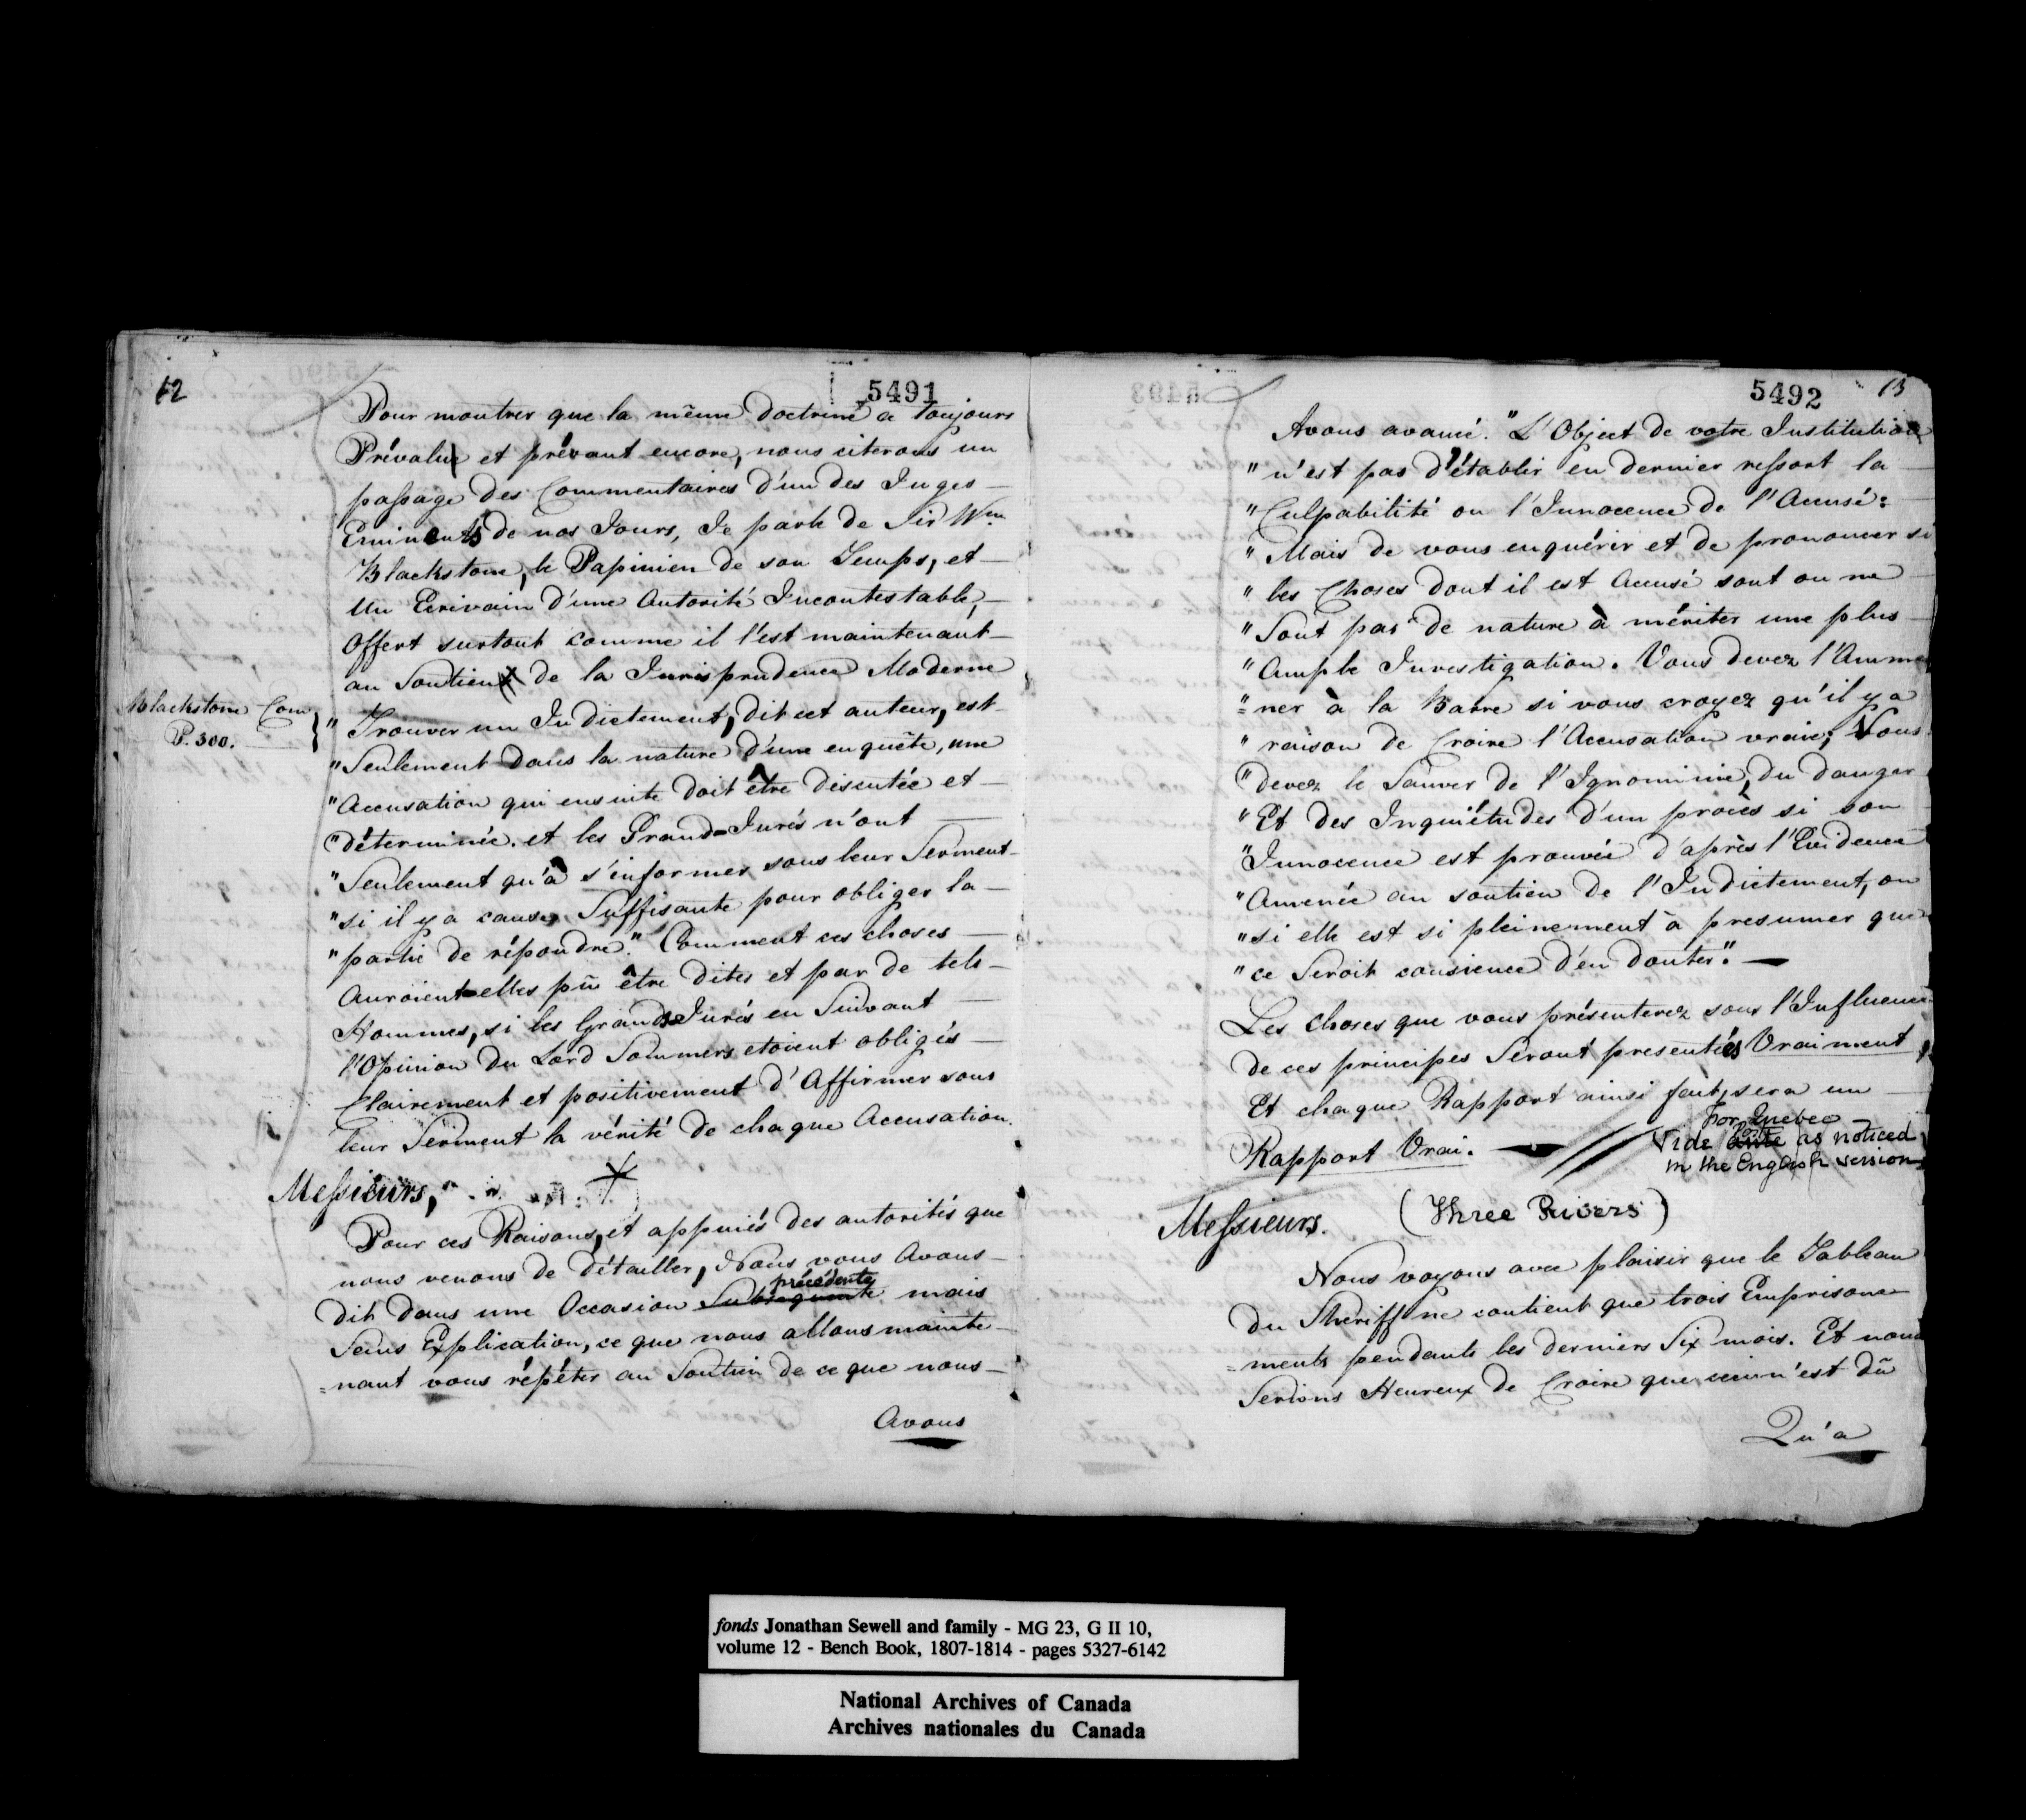 12
5491
Pour montrer que la même doctrine a toujours
Prévalu et prévaut encore, nous citerons un
passage des Commentaires d'un des Juges
Eminents de nos Jours, Je parle de Sir Wm
Blackstone, le Papinien de son Temps, et
Un Ecrivain d'une Autorité Incontestable,
Offert surtout comme il l'est maintenant
au Soutien de la Jurisprudence Moderne
Blackstone Com
P. 300.
" Trouver un Indictement, dit cet auteur, est
" Seulement dans la nature d'une enquête, une
" Accusation qui ensuite doit être discutée et
" déterminée. et les Grand=Jurés n'ont
" Seulement qu'à s'informer sous leur Serment
" si il y a cause Suffisante pour obliger la
" partie de répondre." Comment ces choses
Auroient-elles pû être dites et par de tels
Hommes, si les Grands Jurés en Suivant
l'Opinion du Lord Sommers etoient obligés
Clairement et positivement d'Affirmer sous
leur Serment la vérité de chaque Accusation.
Messieurs,
Pour ces Raisons, et appuiés des autorités que
nous venons de détailler, Nous vous Avons
précédente
dit dans une Occasion Subsequente mais
Sans Explication, ce que nous allons mainte
=nant vous répéter au Soutien de ce que nous
Avons
5492
13
Avons avancé. "L'Object de votre Institution
" n'est pas d'établir en dernier ressort la
" Culpabilité ou l'Innocence de l'Accusé:
" Mais de vous enquérir et de prononcer si
" les Choses dont il est Accusé sont ou ne
" Sont pas de nature à mériter une plus
" Ample Investigation. Vous devez l'Amme
"=ner à la Barre si vous croyez qu'il y a
" raison de Croire l'Accusation vraie; Vous
" devez le Sauver de l'Ignominie, du danger
" Et des Inquiétudes d'un procès si son
" Innocence est prouvée d'après l'Evidence
" Amenée au soutien de l'Indictement, ou
" si elle est si pleinement à presumer que
" ce Seroit consience d'en douter."
Les choses que vous présenterez sous l'Influence
de ces principes Seront presentées Vraiment,
Et chaque Rapport ainsi fait, sera un
Rapport Vrai.
For Quebec
Vide ante post as noticed
in the English version
Messieurs. (Three Rivers)
Nous voyons avec plaisir que le Tableau
du Sheriff ne contient que trois Emprisone
=ments pendants les derniers Six mois. Et nous
Serions Heureux de Croire que ceci n'est dû
Qu'a
fonds Jonathan Sewell and family - MG 23, G II 10,
volume 12 - Bench Book, 1807-1814 - pages 5327-6142
National Archives of Canada
Archives nationales du Canada